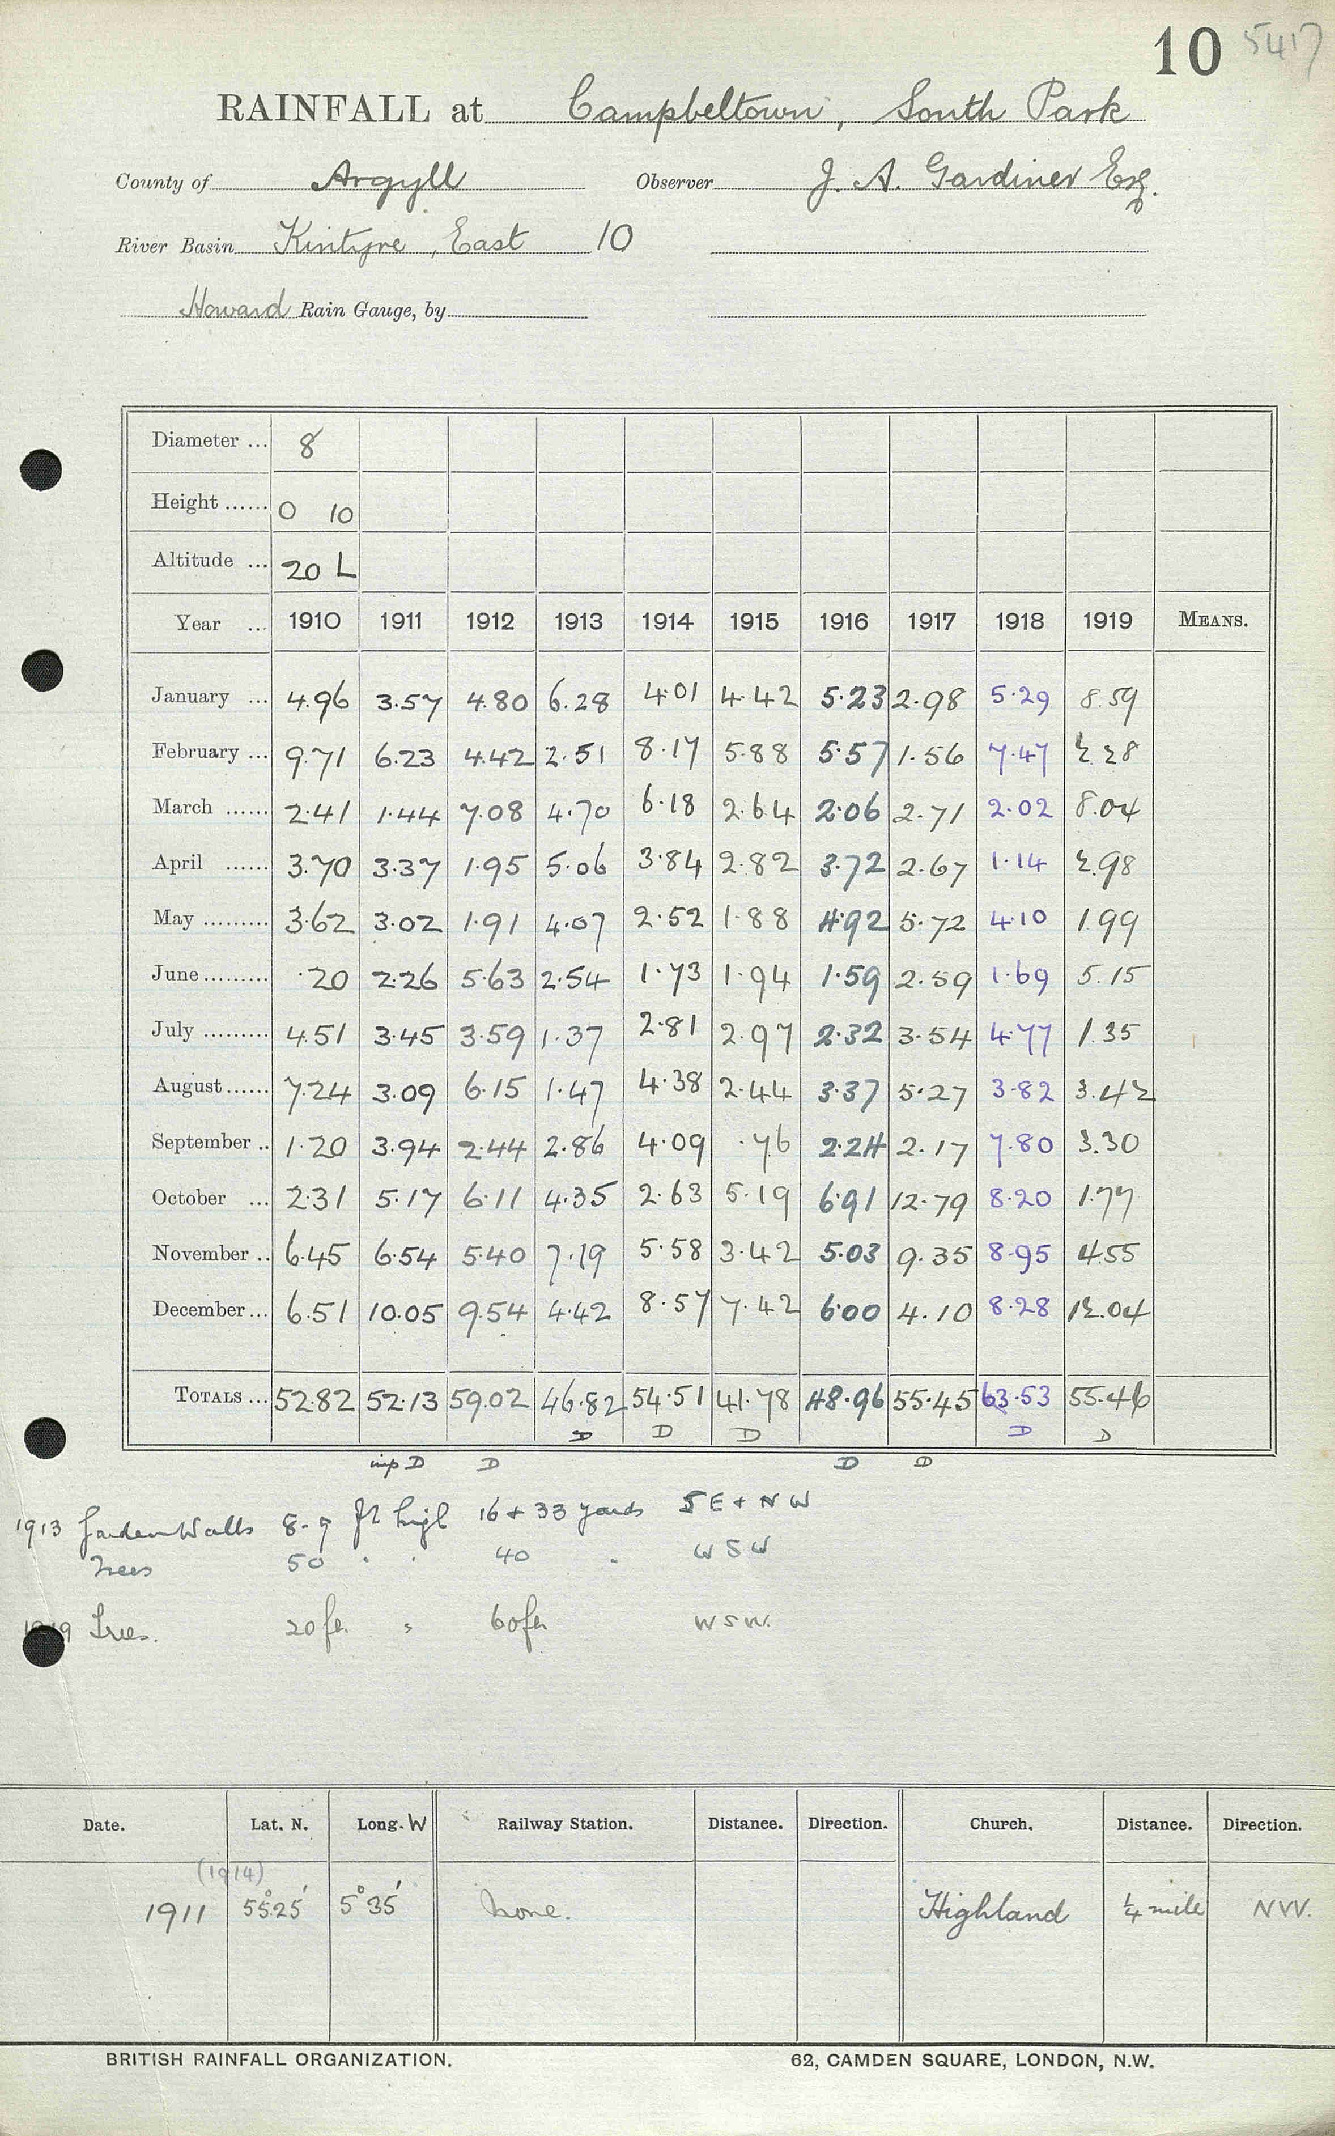 10 5417
RAINFALL at Campbeltown, South Park
County of Argyll Observer J. A. Gardiner Esq.
River Basin Kintyre, East 10
Howard Rain Gauge, by
Diameter ... 8
Height ...... 0 10
Altitude ... 20 L
Year ... 1910 1911 1912 1913 1914 1915 1916 1917 1918 1919 MEANS.
January ... 4.96 3.57 4.80 6.28 4.01 4.42 5.23 2.98 5.29 8.59
February ... 9.71 6.23 4.42 2.51 8.17 5.88 5.57 1.56 7.47 2.28
March ...... 2.41 1.44 7.08 4.70 6.18 2.64 2.06 2.71 2.02 8.04
April ...... 3.70 3.37 1.95 5.06 3.84 2.82 3.72 2.67 1.14 2.98
May ......... 3.62 3.02 1.91 4.07 2.52 1.88 4.92 5.72 4.10 1.99
June ......... .20 2.26 5.63 2.54 1.73 1.94 1.59 2.59 1.69 5.15
July ......... 4.51 3.45 3.59 1.37 2.81 2.97 2.32 3.54 4.77 1.35
August ...... 7.24 3.09 6.15 1.47 4.38 2.44 3.37 5.27 3.82 3.42
September .. 1.20 3.94 2.44 2.86 4.09 .76 2.24 2.17 7.80 3.30
October ... 2.31 5.17 6.11 4.35 2.63 5.19 6.91 12.79 8.20 1.77
November .. 6.45 6.54 5.40 7.19 5.58 3.42 5.03 9.35 8.95 4.55
December ... 6.51 10.05 9.54 4.42 8.57 7.42 6.00 4.10 8.28 12.04
TOTALS ... 52.82 52.13 59.02 46.82 54.51 41.78 48.96 55.45 63.53 55.46
D D D D D
imp D D D D
1913 Garden Walls 8-9 ft high 16 + 33 yards SE + NW
Trees 50 " " 40 " WSW
1919 Trees. 20 ft. " 60 ft WSW.
Date. Lat. N. Long. W Railway Station. Distance. Direction. Church. Distance. Direction.
(1914)
1911 55°25' 5°35' None. Highland ¼ mile NW.
BRITISH RAINFALL ORGANIZATION. 62, CAMDEN SQUARE, LONDON, N.W.